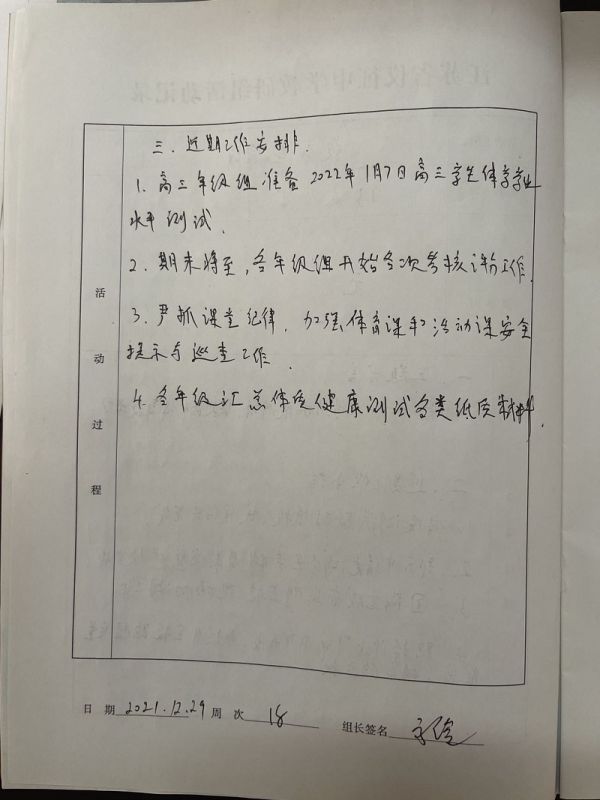 三、近期工作安排.
1. 高三年级组准备2022年1月7日高三学生体育学业
水平测试.
2. 期末将至,各年级组开始各次考核评价工作.
3. 严抓课堂纪律,加强体育课和活动课安全
提示与巡查工作.
4. 各年级汇总体质健康测试各类纸质材料.
活动过程
日 期 2021.12.29 周 次 18 组长签名